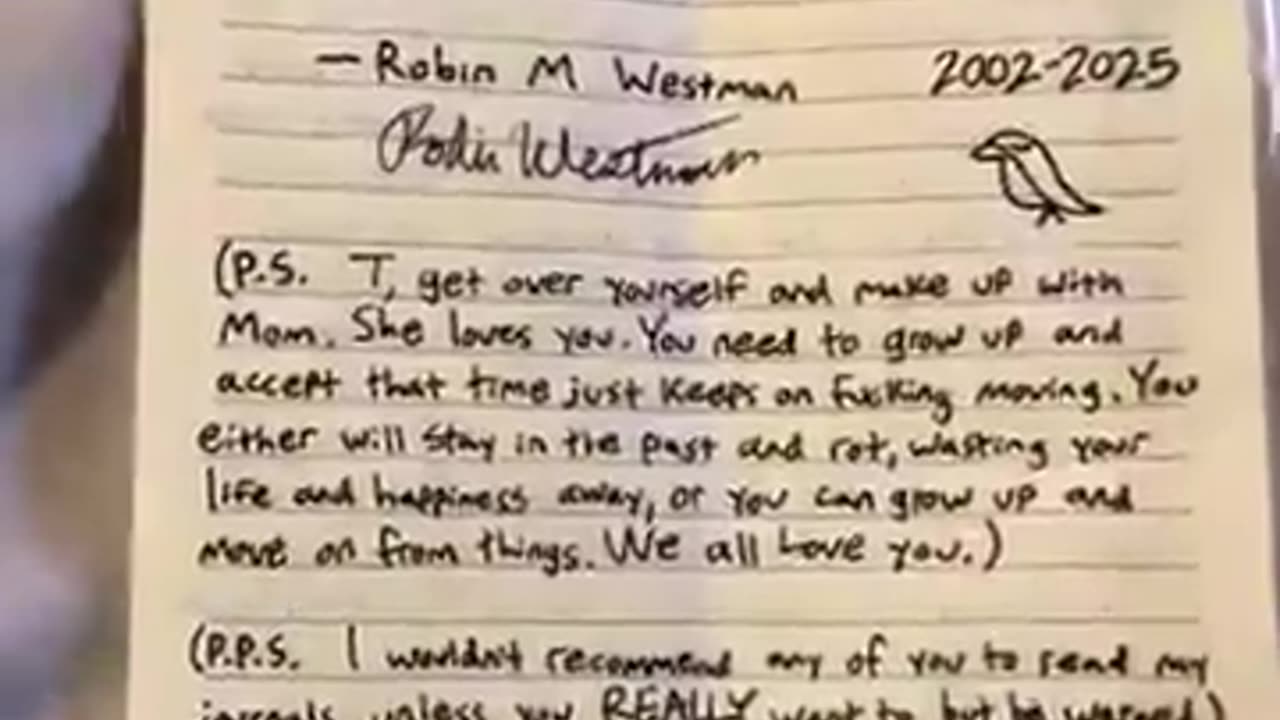 — Robin M Westman 2002-2025
Robin Westman
(P.S. T, get over yourself and make up with
Mom. She loves you. You need to grow up and
accept that time just keeps on fucking moving. You
either will stay in the past and rot, wasting your
life and happiness away, or you can grow up and
move on from things. We all Love you.)
(P.P.S. I wouldn't recommend any of you to read my
journals unless you REALLY want to, but be warned.)